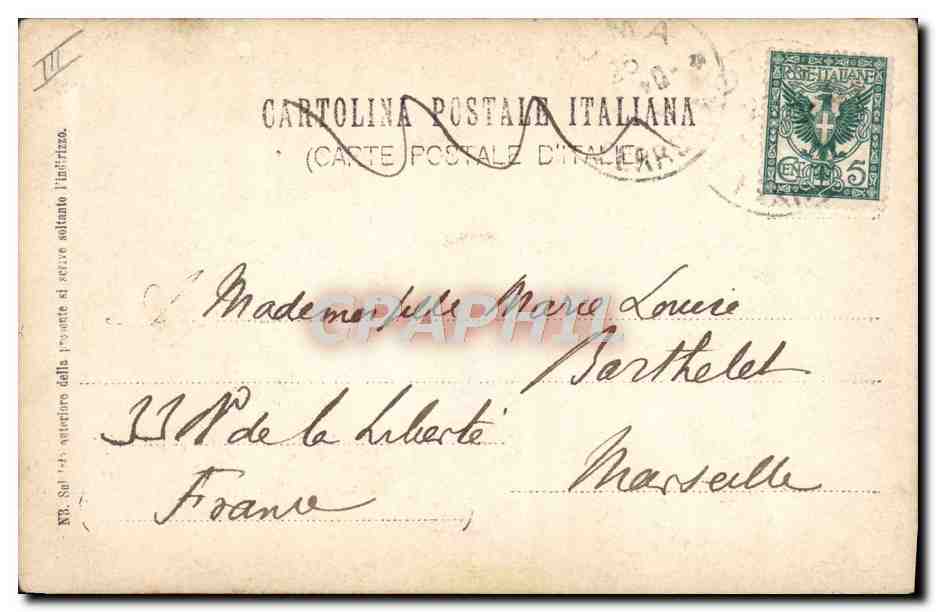 III
CARTOLINA POSTALE ITALIANA
(CARTE POSTALE D'ITALIE)
POSTE·ITALIANE
CENT 5
NB. Sul lato anteriore della presente si scrive soltanto l'indirizzo.
Mademoiselle Marie Louise
Barthelet
33 de la Liberté
Marseille
France
CPAPHIL